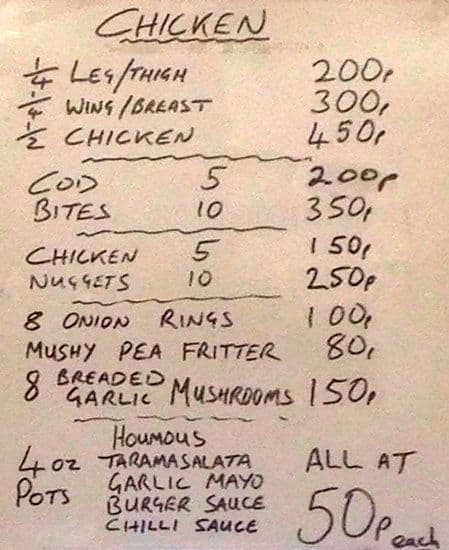 CHICKEN
1/4 LEG/THIGH 200p
1/4 WING/BREAST 300p
1/2 CHICKEN 450p
COD 5 200p
BITES 10 350p
CHICKEN 5 150p
NUGGETS 10 250p
8 ONION RINGS 100p
MUSHY PEA FRITTER 80p
8 BREADED GARLIC MUSHROOMS 150p
HOUMOUS
4 OZ TARAMASALATA ALL AT
POTS GARLIC MAYO
BURGER SAUCE 50p each
CHILLI SAUCE